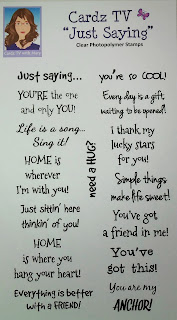 Cardz TV
"Just Saying"
Clear Photopolymer Stamps
Just saying...
YOU'RE the one
and only YOU!
Life is a song...
Sing it!
HOME is
wherever
I'm with you!
Just sittin' here
thinkin' of you!
HOME
is where you
hang your heart!
Everything is better
with a FRIEND!
need a HUG?
you're so COOL!
Every day is a gift,
waiting to be opened!
I thank my
lucky stars
for you!
Simple things
make life sweet!
You've got
a friend in me!
You've
got this!
You are my
ANCHOR!